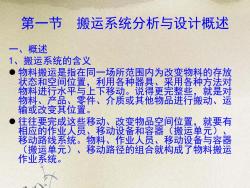 第一节 搬运系统分析与设计概述
一、概述
1、搬运系统的含义
●物料搬运是指在同一场所范围内为改变物料的存放
状态和空间位置，利用各种器具、采用各种方法对
物料进行水平与上下移动。说得更完整些，就是对
物料、产品、零件、介质或其他物品进行搬动、运
输或改变其位置。
●往往要完成这些移动、改变物品空间位置，就要有
相应的作业人员、移动设备和容器（搬运单元）、
移动路线系统。物料、作业人员、移动设备与容器
（搬运单元）、移动路径的组合就构成了物料搬运
作业系统。